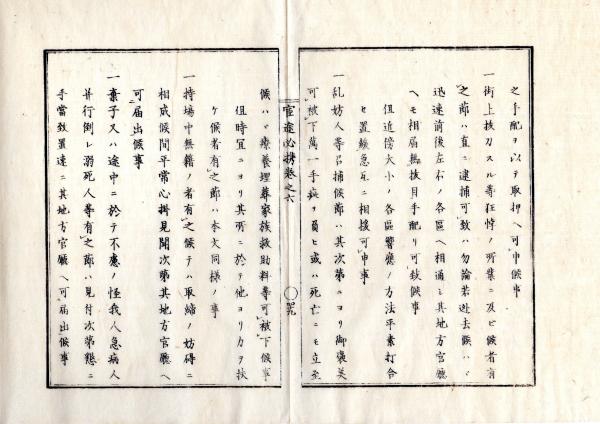 之手配ヲ以テ取押ヘ可申候事
一街上抜刀スル等狂悖ノ所業ニ及ビ候者有
之節ハ直ニ逮捕可致ハ勿論若逃去候ハヾ
迅速前後左右ノ各區ヘ相通シ其地方官廳
ヘモ相届無抜目手配リ可致候事
但近傍大小ノ各區響應ノ方法平素打合
セ置緩急互ニ相援可申事
一乱妨人等召捕候節ハ其次第ニヨリ御褒美
可被下萬一手疵ヲ負ヒ或ハ死亡ニモ立至
官途必携巻之六
候ハヾ療養埋葬家族救助料等可被下候事
但時宜ニヨリ其所ニ於テ他ヨリ力ヲ扶
ケ候者有之節ハ本文同様ノ事
一持場中無籍ノ者有之候テハ取締ノ妨碍ニ
相成候間平常心掛見聞次第其地方官廳ヘ
可届出候事
一棄子又ハ途中ニ於テ不慮ノ怪我人急病人
并行倒レ溺死人等有之節ハ見付次第懇ニ
手當致置速ニ其地方官廳ヘ可届出候事